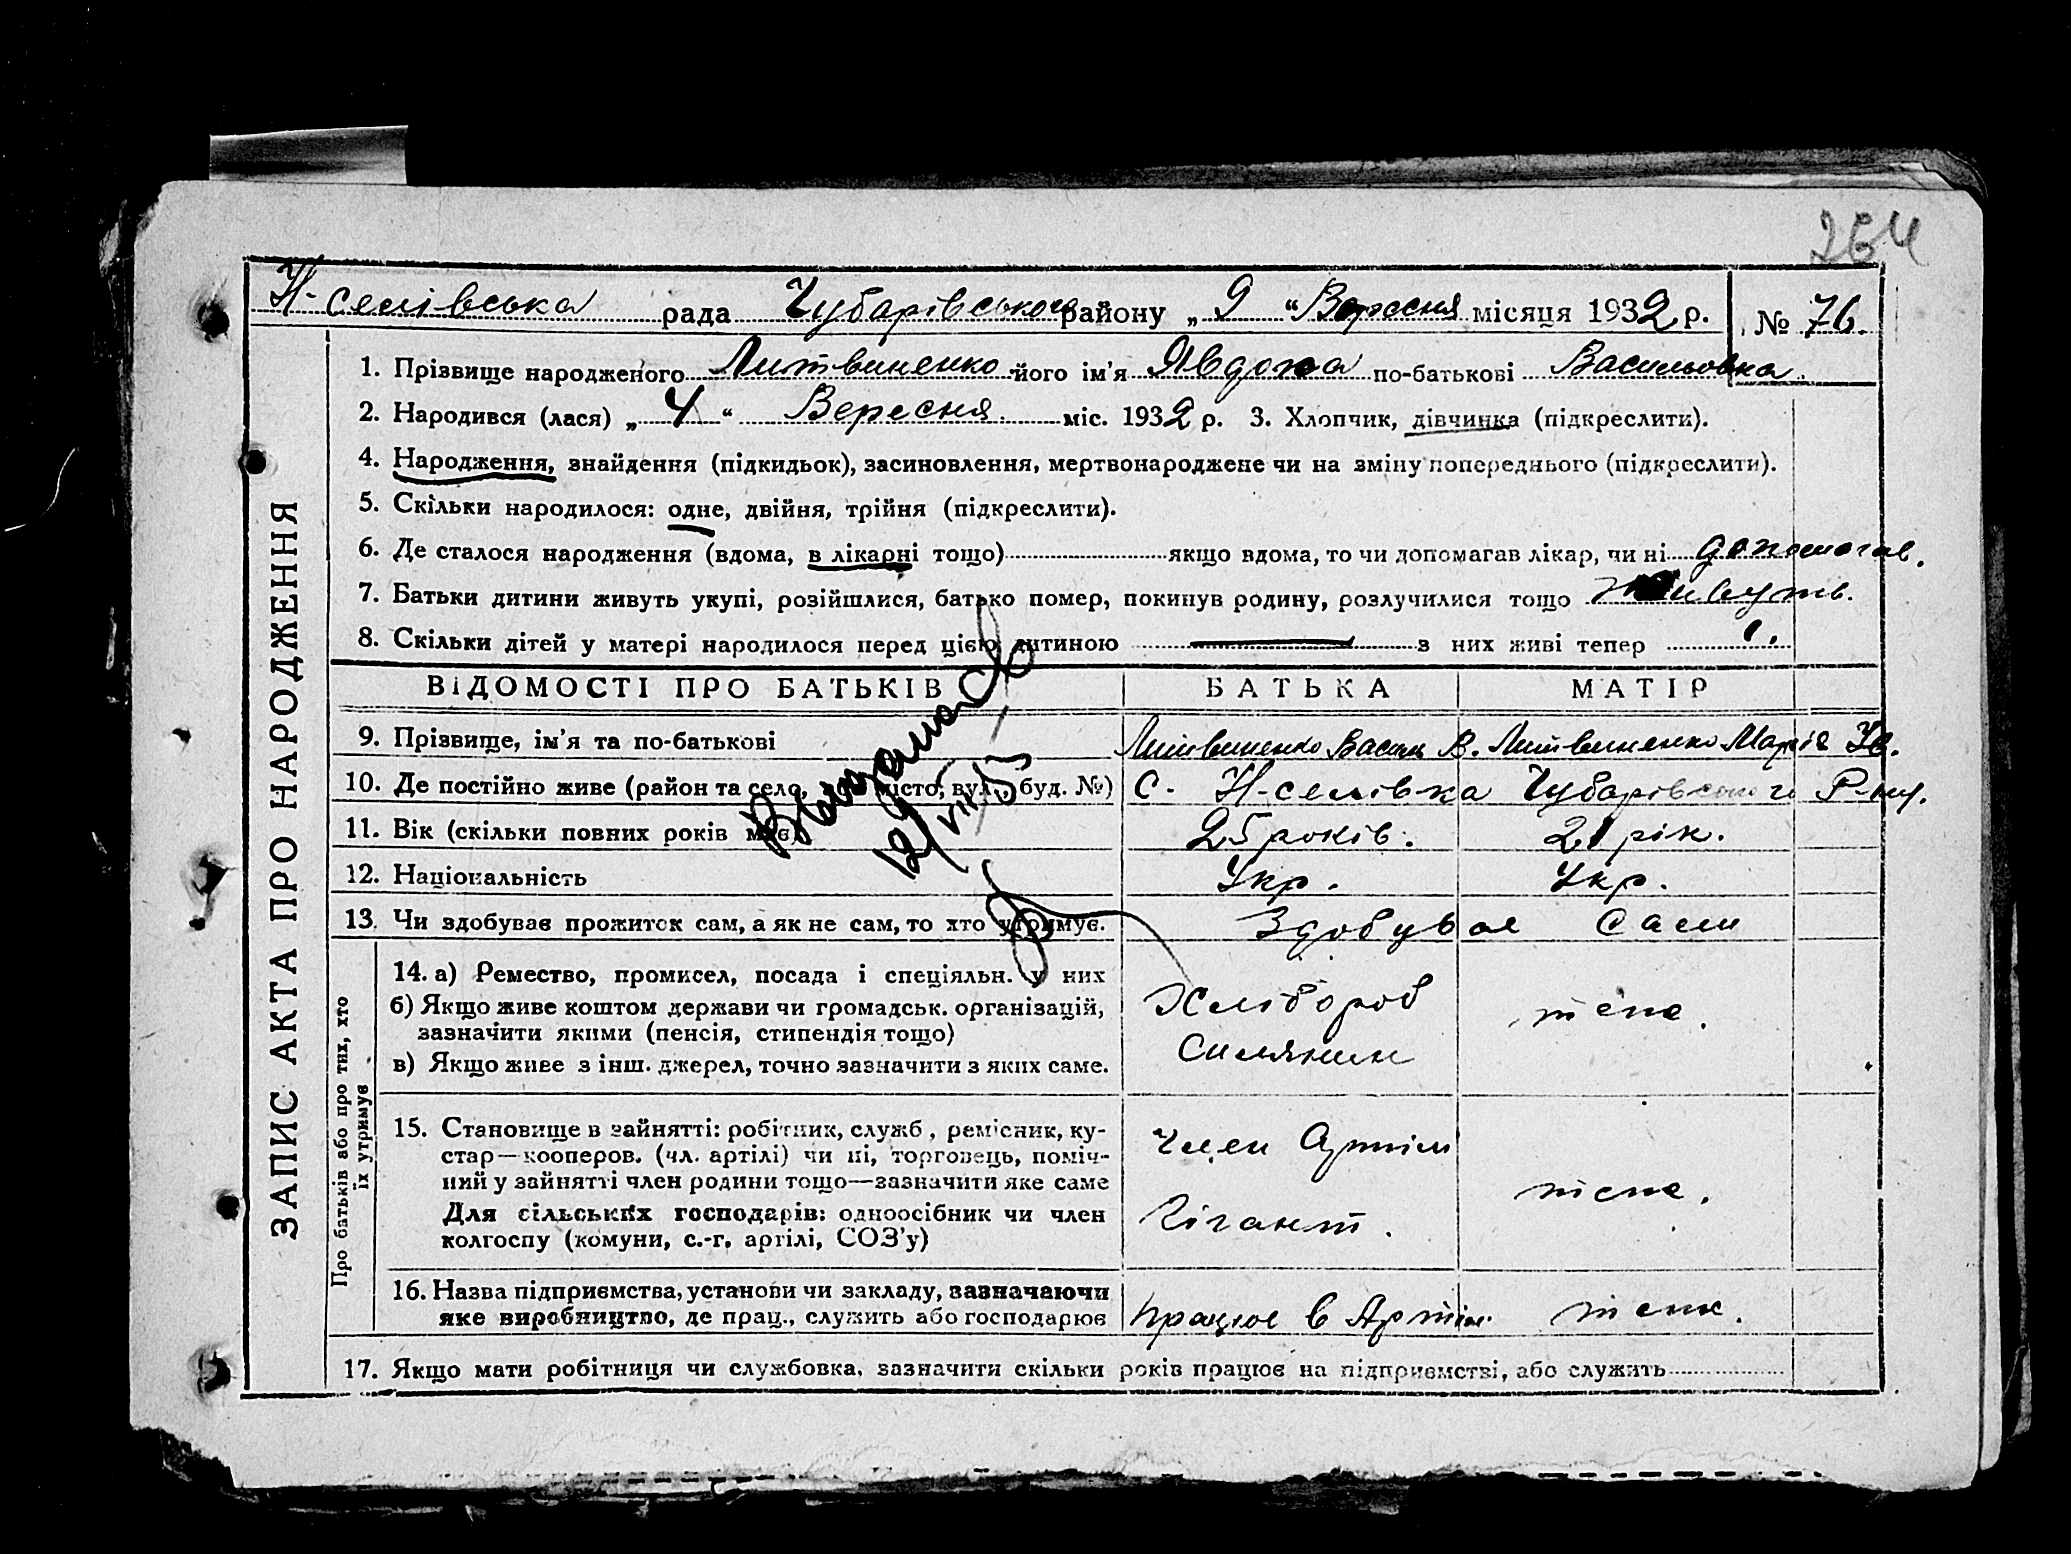 264
Н-селівська рада Чубарівського району „ 9 “ Вересня місяця 1932 р. № 76.
ЗАПИС АКТА ПРО НАРОДЖЕННЯ
1. Прізвище народженого Литвиненко його ім'я Явдоха по-батькові Васильовна.
2. Народився (лася) „ 4 “ Вересня. міс. 1932 р. 3. Хлопчик, дівчинка (підкреслити).
4. Народження, знайдення (підкидьок), засиновлення, мертвонароджене чи на зміну попереднього (підкреслити).
5. Скільки народилося: одне, двійня, трійня (підкреслити).
6. Де сталося народження (вдома, в лікарні тощо) якщо вдома, то чи допомагав лікар, чи ні допомогав.
7. Батьки дитини живуть укупі, розійшлися, батько помер, покинув родину, розлучилися тощо Живуть.
8. Скільки дітей у матері народилося перед цією дитиною — з них живі тепер 1.
ВІДОМОСТІ ПРО БАТЬКІВ БАТЬКА МАТІР
9. Прізвище, ім'я та по-батькові Литвиненко Васил В. Литвиненко Марія Ів.
10. Де постійно живе (район та село, місто, вул., буд. №) С. Н-селівка Чубарівського Р-ну.
11. Вік (скільки повних років має) 25 років. 21 рік.
12. Національність Укр. Укр.
13. Чи здобуває прожиток сам, а як не сам, то хто утримує. Здобував сам
Про батьків або про тих, хто
їх утримує
14. а) Ремество, промисел, посада і спеціяльн. у них
б) Якщо живе коштом держави чи громадськ. організацій,
зазначити якими (пенсія, стипендія тощо)
в) Якщо живе з інш. джерел, точно зазначити з яких саме.
Хлібороб теж.
Силянин
15. Становище в зайнятті: робітник, служб., ремісник, ку-
стар—кооперов. (чл. артілі) чи ні, торговець, поміч-
ний у зайнятті член родини тощо—зазначити яке саме
Для сільських господарів: одноосібник чи член
колгоспу (комуни, с.-г. артілі, СОЗ'у)
Член Артіли
Гігант. теж.
16. Назва підприємства, установи чи закладу, зазначаючи
яке виробництво, де прац., служить або господарює працює в Артіл. теж.
17. Якщо мати робітниця чи службовка, зазначити скільки років працює на підприємстві, або служить